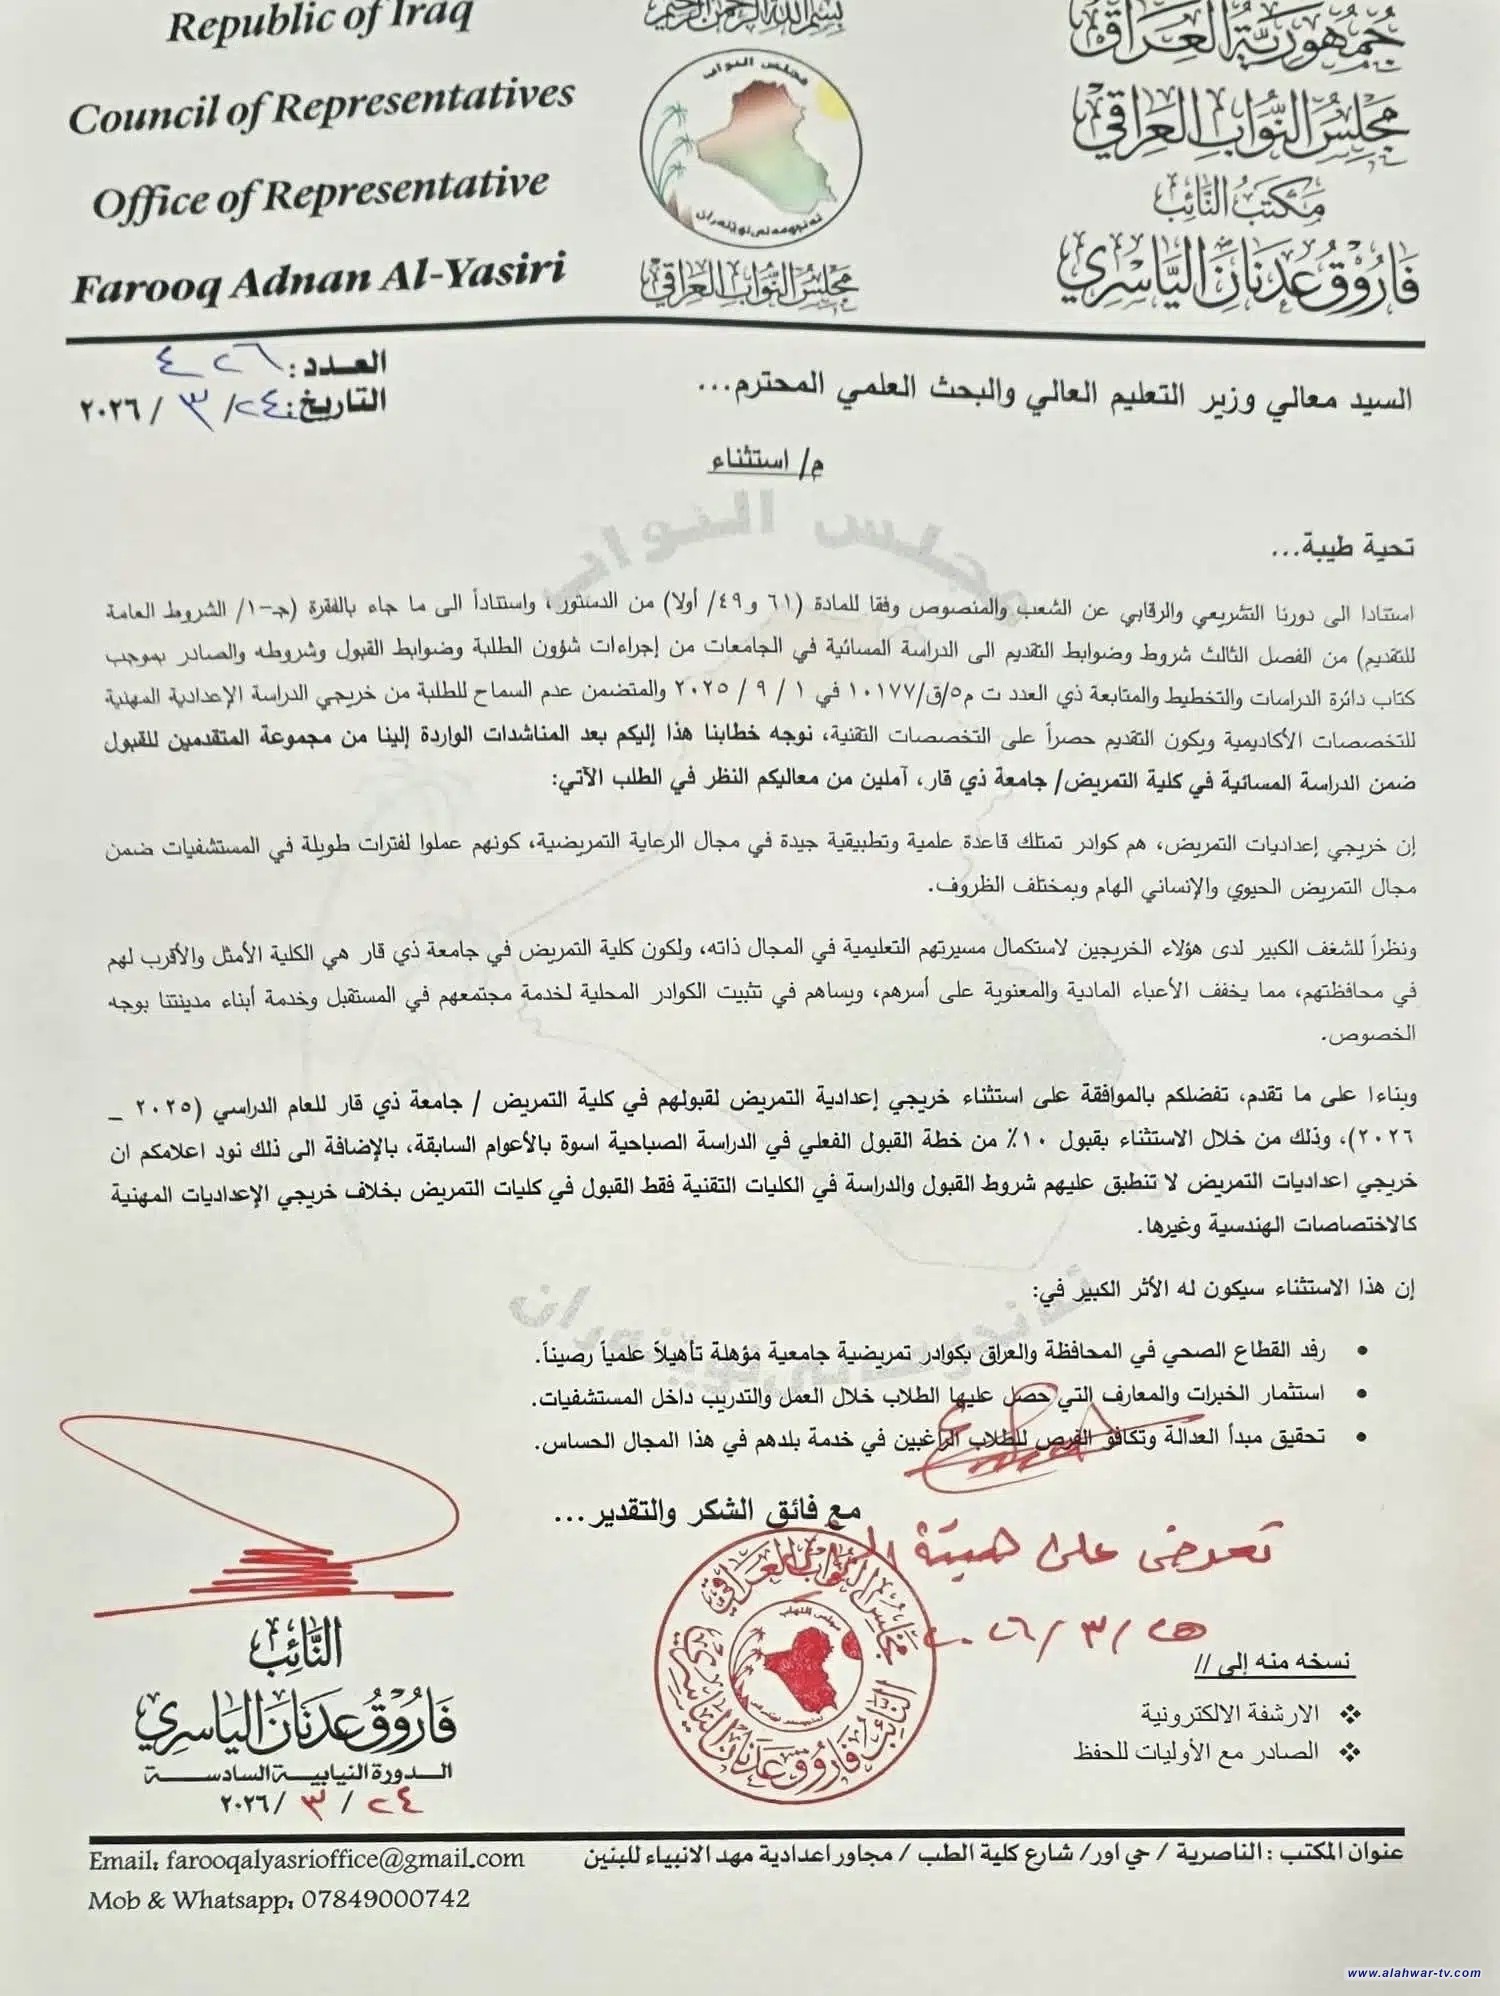 Republic of Iraq
Council of Representatives
Office of Representative
Farooq Adnan Al-Yasiri
بسم الله الرحمن الرحيم
مجلس النواب
ئه نجومه نی نوێنه ران
مجلس النواب العراقي
جمهورية العراق
مجلس النواب العراقي
مكتب النائب
فاروق عدنان الياسري
العدد: ٤٢٦
التاريخ: ٢٤/ ٣ / ٢٠٢٦
السيد معالي وزير التعليم العالي والبحث العلمي المحترم...
م/ استثناء
تحية طيبة...
استنادا الى دورنا التشريعي والرقابي عن الشعب والمنصوص وفقا للمادة (٦١ و٤٩/ أولا) من الدستور، واستناداً الى ما جاء بالفقرة (جـ-١/ الشروط العامة
للتقديم) من الفصل الثالث شروط وضوابط التقديم الى الدراسة المسائية في الجامعات من إجراءات شؤون الطلبة وضوابط القبول وشروطه والصادر بموجب
كتاب دائرة الدراسات والتخطيط والمتابعة ذي العدد ت م٥/ق/١٠١٧٧ في ١ / ٩ / ٢٠٢٥ والمتضمن عدم السماح للطلبة من خريجي الدراسة الإعدادية المهنية
للتخصصات الأكاديمية ويكون التقديم حصراً على التخصصات التقنية، نوجه خطابنا هذا إليكم بعد المناشدات الواردة إلينا من مجموعة المتقدمين للقبول
ضمن الدراسة المسائية في كلية التمريض/ جامعة ذي قار، آملين من معاليكم النظر في الطلب الآتي:
إن خريجي إعداديات التمريض، هم كوادر تمتلك قاعدة علمية وتطبيقية جيدة في مجال الرعاية التمريضية، كونهم عملوا لفترات طويلة في المستشفيات ضمن
مجال التمريض الحيوي والإنساني الهام وبمختلف الظروف.
ونظراً للشغف الكبير لدى هؤلاء الخريجين لاستكمال مسيرتهم التعليمية في المجال ذاته، ولكون كلية التمريض في جامعة ذي قار هي الكلية الأمثل والأقرب لهم
في محافظتهم، مما يخفف الأعباء المادية والمعنوية على أسرهم، ويساهم في تثبيت الكوادر المحلية لخدمة مجتمعهم في المستقبل وخدمة أبناء مدينتنا بوجه
الخصوص.
وبناءا على ما تقدم، تفضلكم بالموافقة على استثناء خريجي إعدادية التمريض لقبولهم في كلية التمريض / جامعة ذي قار للعام الدراسي (٢٠٢٥ _
٢٠٢٦)، وذلك من خلال الاستثناء بقبول ١٠٪ من خطة القبول الفعلي في الدراسة الصباحية اسوة بالأعوام السابقة، بالإضافة الى ذلك نود اعلامكم ان
خريجي اعداديات التمريض لا تنطبق عليهم شروط القبول والدراسة في الكليات التقنية فقط القبول في كليات التمريض بخلاف خريجي الإعداديات المهنية
كالاختصاصات الهندسية وغيرها.
إن هذا الاستثناء سيكون له الأثر الكبير في:
• رفد القطاع الصحي في المحافظة والعراق بكوادر تمريضية جامعية مؤهلة تأهيلاً علمياً رصيناً.
• استثمار الخبرات والمعارف التي حصل عليها الطلاب خلال العمل والتدريب داخل المستشفيات.
• تحقيق مبدأ العدالة وتكافؤ الفرص للطلاب الراغبين في خدمة بلدهم في هذا المجال الحساس.
مع فائق الشكر والتقدير...
تعرض على هيئة
٢٥/ ٣ /٢٠٢٦
مجلس النواب العراقي
النائب فاروق عدنان الياسري
النائب
فاروق عدنان الياسري
الدورة النيابية السادسة
٢٤ / ٣ /٢٠٢٦
نسخه منه إلى //
❖ الارشفة الالكترونية
❖ الصادر مع الأوليات للحفظ
عنوان المكتب : الناصرية / حي اور/ شارع كلية الطب / مجاور اعدادية مهد الانبياء للبنين
Email: farooqalyasrioffice@gmail.com
Mob & Whatsapp: 07849000742
www.alahwar-tv.com